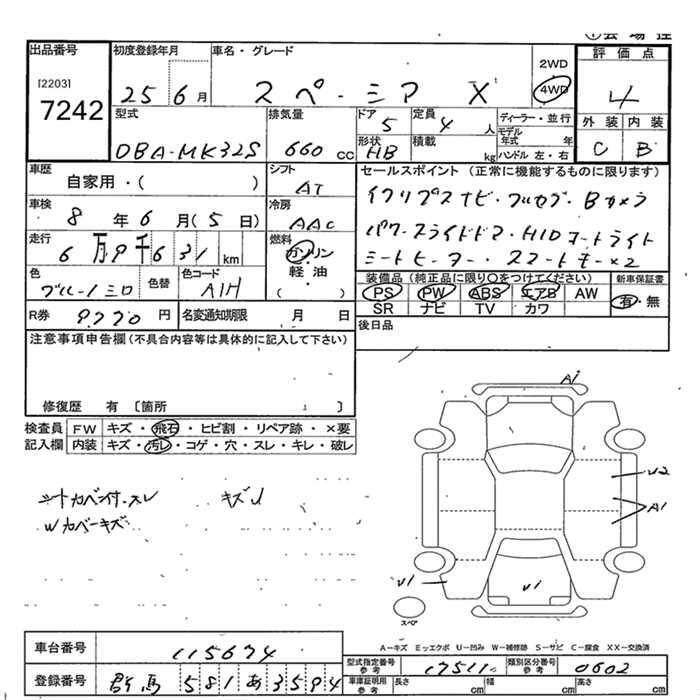 出品番号
[2203]
7242
初度登録年月
25 6月
車名・グレード
スペーシア X
2WD
4WD
評価点
4
外装 内装
C B
型式
DBA-MK32S
排気量
660 cc
ドア
5
定員
4 人
形状
HB
積載
kg
ディーラー・並行
モデル年式 年
ハンドル 左・右
車歴
自家用・( )
シフト
AT
セールスポイント (正常に機能するものに限ります)
車検
8年 6月 (5日)
冷房
AAC
走行
6万9千631 km
燃料
ガソリン
軽油
( )
色
色替
色コード
装備品 (純正品に限り○をつけてください)
PS PW ABS エアB AW
SR ナビ TV カワ
新車保証書
有・無
R券
9770 円
名変通知期限 月 日
後日品
注意事項申告欄 (不具合内容等は具体的に記入して下さい)
修復歴 有 〔箇所 〕
検査員記入欄
FW キズ・飛石・ヒビ割・リペア跡・×要
内装 キズ・汚レ・コゲ・穴・スレ・キレ・破レ
キズU
Wカバーキズ
A1
U2
A1
U1
U1
スペア
A−キズ E−エクボ U−凹み W−補修跡 S−サビ C−腐食 XX−交換済
車台番号
115674
型式指定番号 参考
17511
類別区分番号 参考
0602
登録番号
群馬 581 あ 3594
車庫証明用 参考
長さ cm 幅 cm 高さ cm